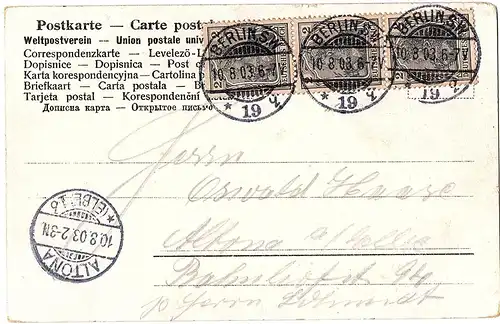 Postkarte — Carte post
Weltpostverein — Union postale univ
Correspondenzkarte — Levelező-L
Dopisnice — Dopisnica — Post
Karta korespondencyjna — Cartolina
Briefkaart — Carta postala — B
Tarjeta postal — Korespondenční
Дописна карта — Открытое письмо
BERLIN.S.W.
10.8.03.6-7
* 19
BERLIN.S.W.
10.8.03.6-7
* 19
BERLIN.S.W.
10.8.03.6-7
* 19
Herrn
Oswald Haase
Altona a/Elbe
Bahnhofst
p. Herrn
* (ELBE) 1
10.8.03.2-3N
ALTONA